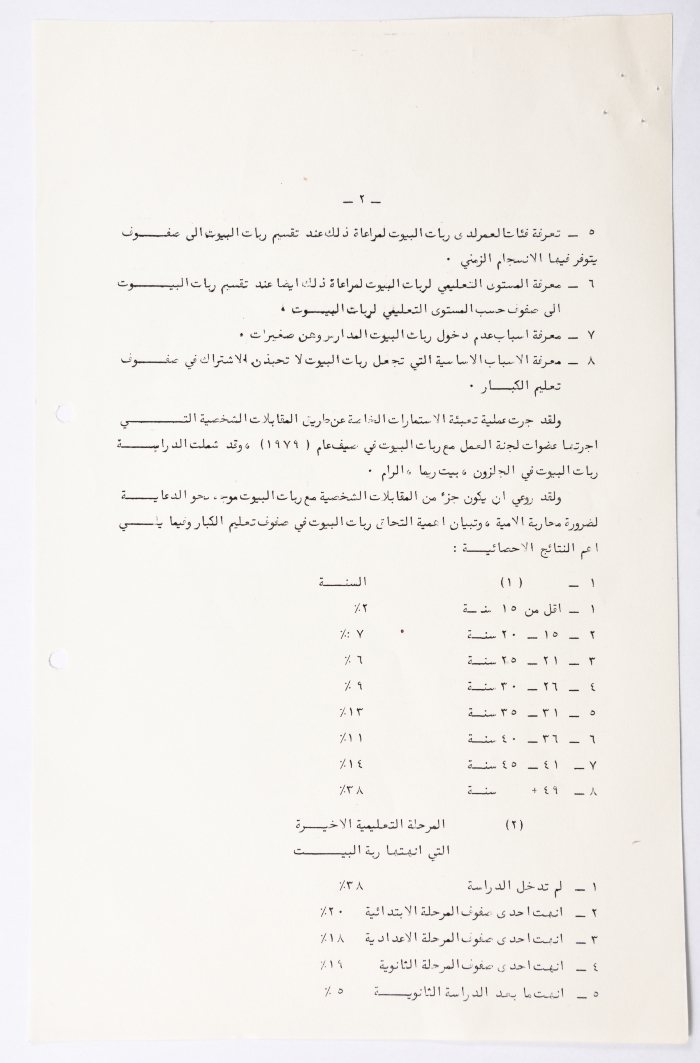 - ٢ -
٥ - تعرفة فئات العمر لدى ربات البيوت لمراعاة ذلك عند تقسيم ربات البيوت الى صفـــوف
يتوفر فيها الانسجام الزمني .
٦ - معرفة المستوى التعليمي لربات البيوت لمراعاة ذلك ايضا عند تقسيم ربات البيـــوت
الى صفوف حسب المستوى التعليمي لربات البيـــوت .
٧ - معرفة اسباب عدم دخول ربات البيوت المدارس وهن صغيرات .
٨ - معرفة الاسباب الاساسية التي تجعل ربات البيوت لا تحبذن الاشتراك في صفـــوف
تعليم الكبـــار .
ولقد جرت عملية تعبئة الاستمارات الخاصة عن طريق المقابلات الشخصية التـــي
اجرتها عضوات لجنة العمل مع ربات البيوت في صيف عام (١٩٧٩) ، وقد شملت الدراسـة
ربات البيوت في الجلزون ، بيت ريما ، الرام .
ولقد روعي ان يكون جزء من المقابلات الشخصية مع ربات البيوت موجه نحو الدعايـة
لضرورة محاربة الامية ، وتبيان اهمية التحاق ربات البيوت في صفوف تعليم الكبار وفيما يلـــي
اهم النتائج الاحصائيـة :
١ - (١) السنـــة
١ - اقل من ١٥ سنـة ٢٪
٢ - ١٥ - ٢٠ سنـــة ٧٪
٣ - ٢١ - ٢٥ سنـــة ٦٪
٤ - ٢٦ - ٣٠ سنـــة ٩٪
٥ - ٣١ - ٣٥ سنـــة ١٣٪
٦ - ٣٦ - ٤٠ سنـــة ١١٪
٧ - ٤١ - ٤٥ سنـــة ١٤٪
٨ - ٤٩ + سنـــة ٣٨٪
(٢) المرحلة التعليمية الاخيـــرة
التي انهتها ربة البيـــت
١ - لم تدخل الدراسة ٣٨٪
٢ - انهت احدى صفوف المرحلة الابتدائية ٢٠٪
٣ - انهت احدى صفوف المرحلة الاعدادية ١٨٪
٤ - انهت احدى صفوف المرحلة الثانوية ١٩٪
٥ - انهت ما بعد الدراسة الثانويـــة ٥٪